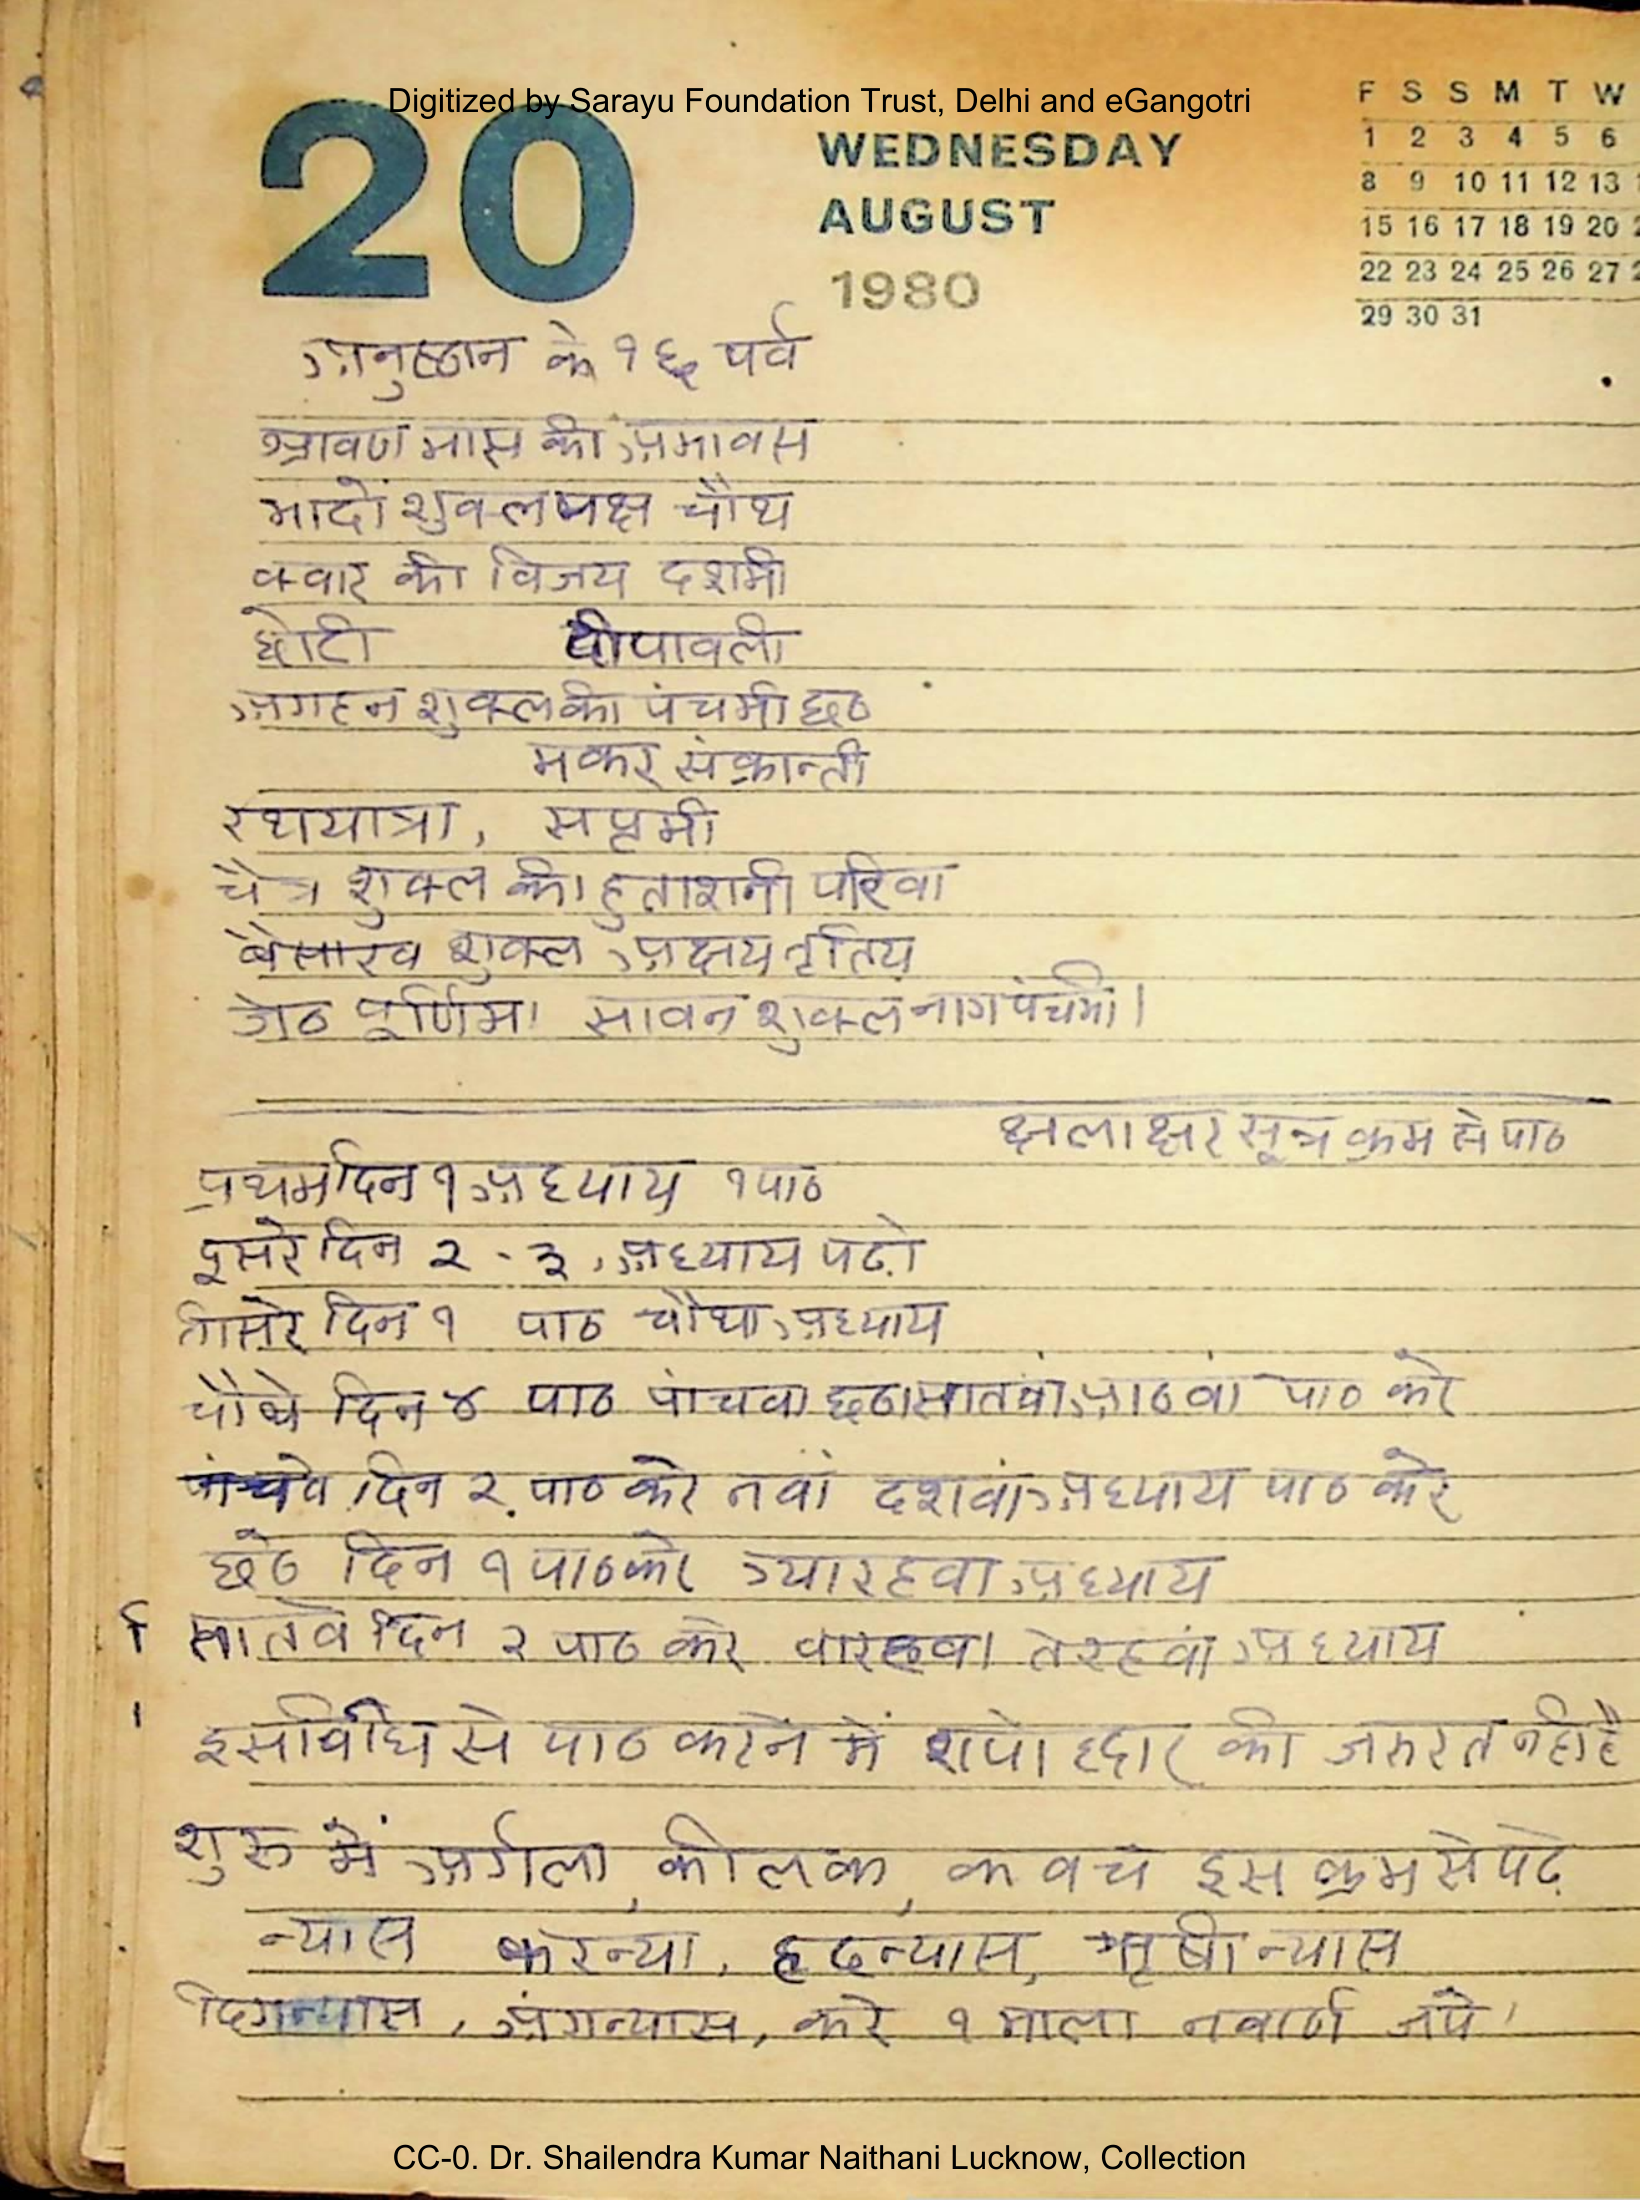 Digitized by Sarayu Foundation Trust, Delhi and eGangotri
20
WEDNESDAY
AUGUST
1980
F S S M T W
1 2 3 4 5 6
8 9 10 11 12 13
15 16 17 18 19 20
22 23 24 25 26 27
29 30 31
अनुष्ठान के १६ पर्व
श्रावण मास की अमावस
भादों शुक्ल पक्ष चौथ
क्वार की विजय दशमी
छोटी दीपावली
अगहन शुक्ल की पंचमी छठ
मकर संक्रान्ती
रथयात्रा, सप्तमी
चैत्र शुक्ल की हुताशनी परिवा
बैसाख शुक्ल अक्षय तृतिय
जेठ पूर्णिमा सावन शुक्ल नाग पंचमी।
सूत्र क्रम से पाठ
प्रथम दिन १ अध्याय १ पाठ
दूसरे दिन २ - ३, अध्याय पढ़ो
तीसरे दिन १ पाठ चौथा अध्याय
चौथे दिन ४ पाठ पांचवा छठा सातवां आठवां पाठ करे
पांचवे दिन २ पाठ करे नवां दशवां अध्याय पाठ करे
छठे दिन १ पाठ करे ग्यारहवा अध्याय
सातवे दिन २ पाठ करे बारहवा तेरहवां अध्याय
इस विधि से पाठ करने में शापोद्धार की जरुरत नही है
शुरु में अर्गला, कीलक, कवच इस क्रम से पढ़े
न्यास करन्या, हृदन्यास, ऋषी न्यास
दिगन्यास, अंगन्यास, करे १ माला नवार्ण जपे।
CC-0. Dr. Shailendra Kumar Naithani Lucknow, Collection